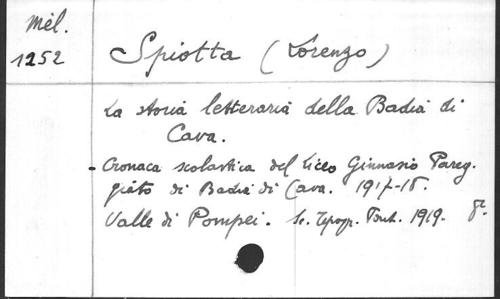 Mél.
1252
Spiotta (Lorenzo)
La storia letteraria della Badia di
Cava.
- Cronaca scolastica del Liceo Ginnasio Pareg-
giato di Badia di Cava. 1917-18.
Valle di Pompei. Sc. Tipogr. 1919. 8°.